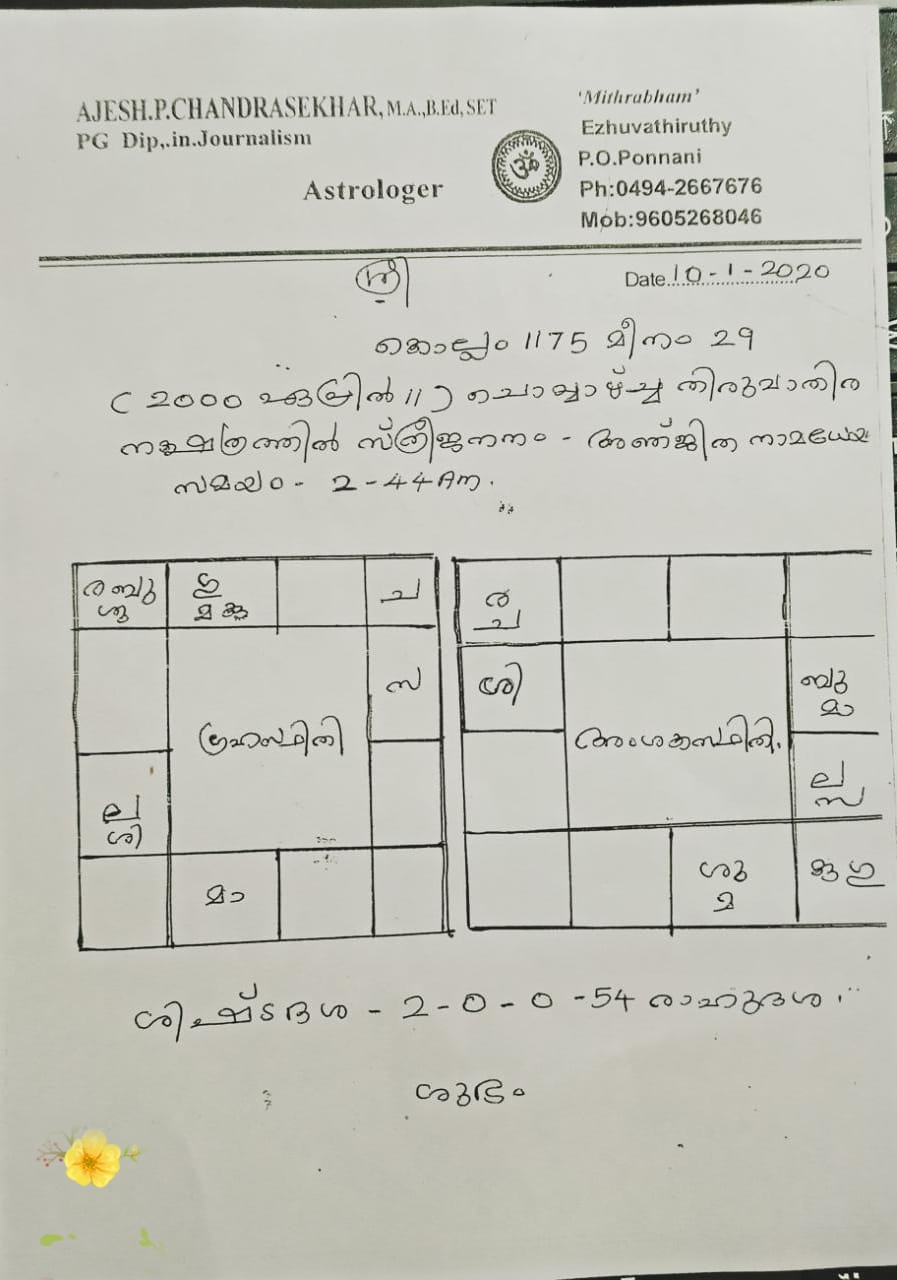 AJESH.P.CHANDRASEKHAR, M.A.,B.Ed, SET
PG Dip,.in.Journalism
Astrologer
ॐ
'Mithrabham'
Ezhuvathiruthy
P.O.Ponnani
Ph:0494-2667676
Mob:9605268046
ശ്രീ
Date 10-1-2020
കൊല്ലം 1175 മീനം 29
( 2000 ഏപ്രിൽ 11 ) ചൊവ്വാഴ്ച്ച തിരുവാതിര
നക്ഷത്രത്തിൽ സ്ത്രീജനനം - അഞ്ജിത നാമധേയം
സമയം - 2-44 Am.
ര ബു
ശു
ഗു
മ കു
ച
സ
ഗ്രഹസ്ഥിതി
ല
ശി
മാ
ര
ച
ശി
ബു
മാ
അംശകസ്ഥിതി.
ല
സ
ശു
മ
കു ഗു
ശിഷ്ടദശ - 2-0-0-54 രാഹുദശ
ശുഭം